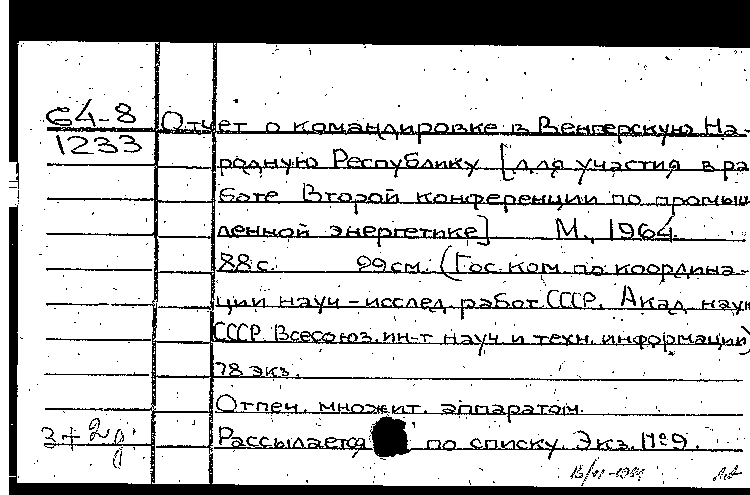 64-8
1233
Отчет о командировке в Венгерскую На-
родную Республику [для участия в ра
боте Второй конференции по промыш
ленной энергетике] М., 1964.
88 с. 29 см. (Гос. ком. по координа-
ции науч-исслед. работ СССР. Акад. наук
СССР. Всесоюз. ин-т науч и техн. информации)
78 экз.
Отпеч. множит. аппаратом.
3+2д. Рассылается по списку. Экз. №9.